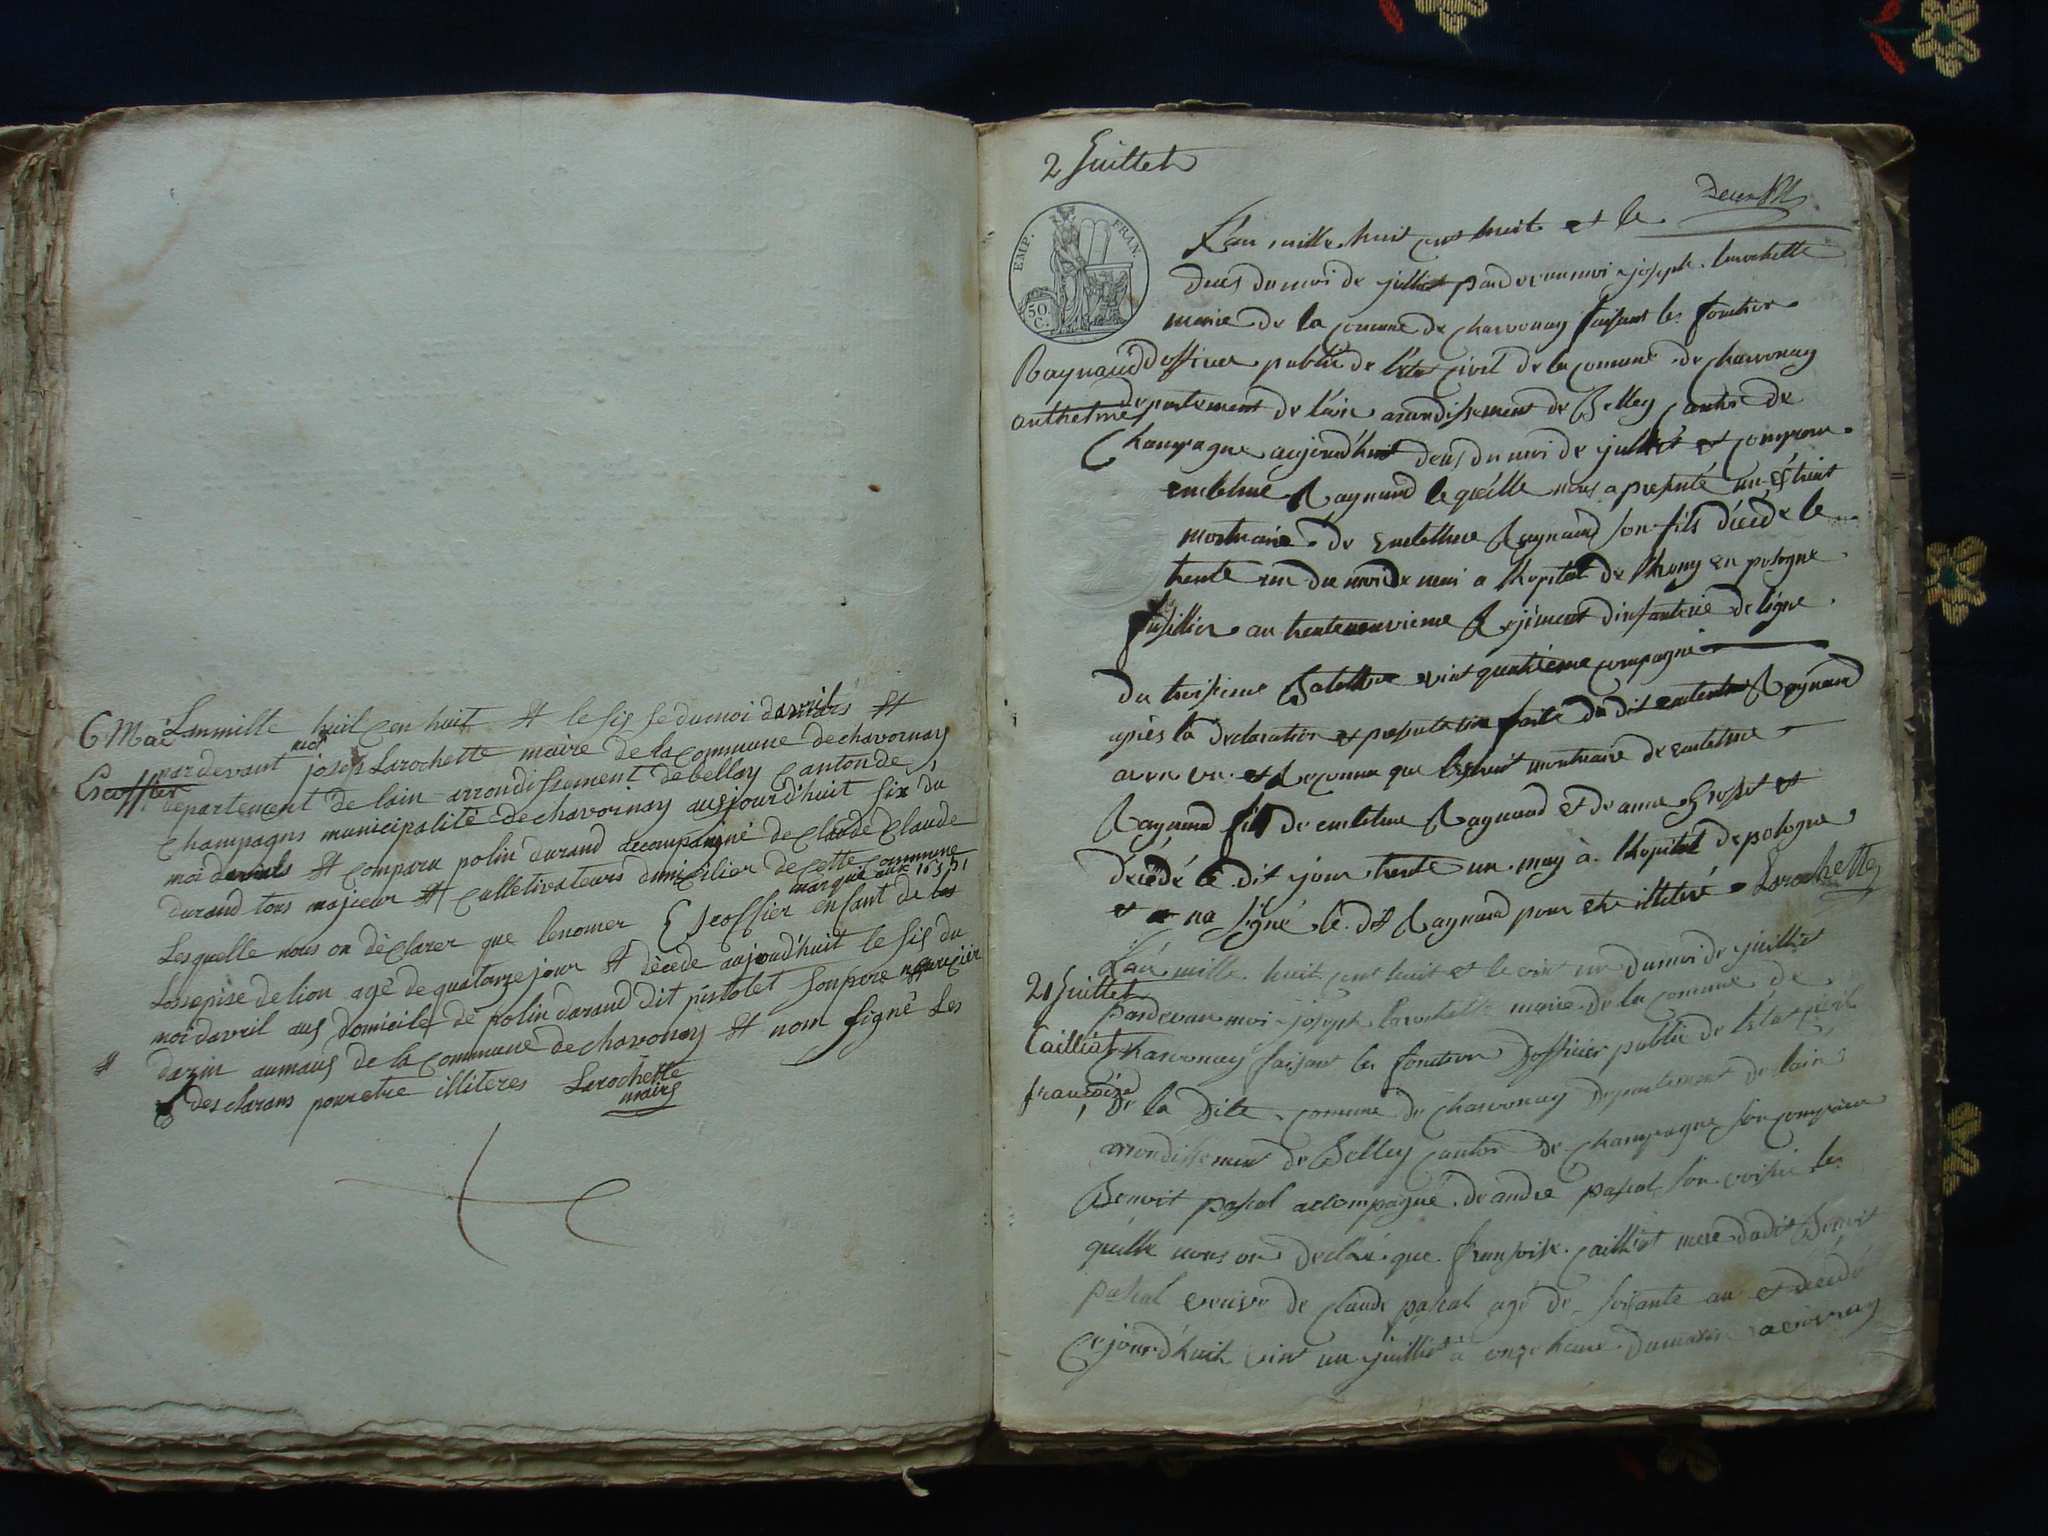 6 Mai Lanmille huit cen huit et le sis se du moi davril et
pardevant moi joseph Larochette maire de la commune de chavornay
Escoffier
departement de lain arrondissement de bellay canton de
champagne municipalité de chavornay ausjourd'huit six du
moi davril et comparu polin durand accompagné de claude claude
durand tous majieur et culletivateurs domicilier de cette commune
marqué aux
Lesquelle nous on déclarer que lenomer Escoffier enfant de
Lossepise de lion agé de quatorze jour et décédé aujourd'huit le sis du
moi davril aus domicile de polin durand dit pistolet son pere nouricier
de la commune de chavornay et nom signé Les
des clarans pour etre illiteres Larochette
maire
2 Juillet
Deces
EMP. FRAN.
50 C.
L'an mille huit cent huit et le
deus du moi de julliet pardevan moi joseph larochette
maire de la comune de charvonay faisant les fonction
Raynaud d'officier public de l'état civil de la comune de charvonay
anthelme departement de l'ain arondissement de Belley canton de
Champagne aujourd'huit deus du moi de julliet et comparu
entelme Raynaud le quelle nous a présenté un extrait
mortuaire de entelme Raynaud son fils décédé le
trente un du moi de mai a l'hopital de Thorn en pologne
fusillier au trente neuvieme Regiment d'infanterie de ligne
du troisieme Batallion vint quatrieme compagnie
après la declaration et presentation faite du dit entelme Raynaud
avon vu et reconnu que l'extrait mortuaire de entelme
Raynaud fils de entelme Raynaud et de anne Grosset et
décédé le dit jour trente un may à l'hopital de pologne
et na signé le dit Raynaud pour etre illiteré Larochette
L'an mille huit cent huit et le vint un du moi de juilliet
21 Juillet
pardevan moi joseph larochette maire de la comune de
Cailliat charvonay faisant les fonction d'officier public de l'état civil
françoise de la dite comune de charvonay departement de lain
arrondissement de Belley canton de champagne son comparu
Benoit pascal accompagné de andré pascal son voisin les
quelle nous on declaré que françoise cailliat mere du dit Benoit
pascal veuve de claude pascal agé de soisante an et décédé
cejourd'huit vint un juilliet à onze heure du matin